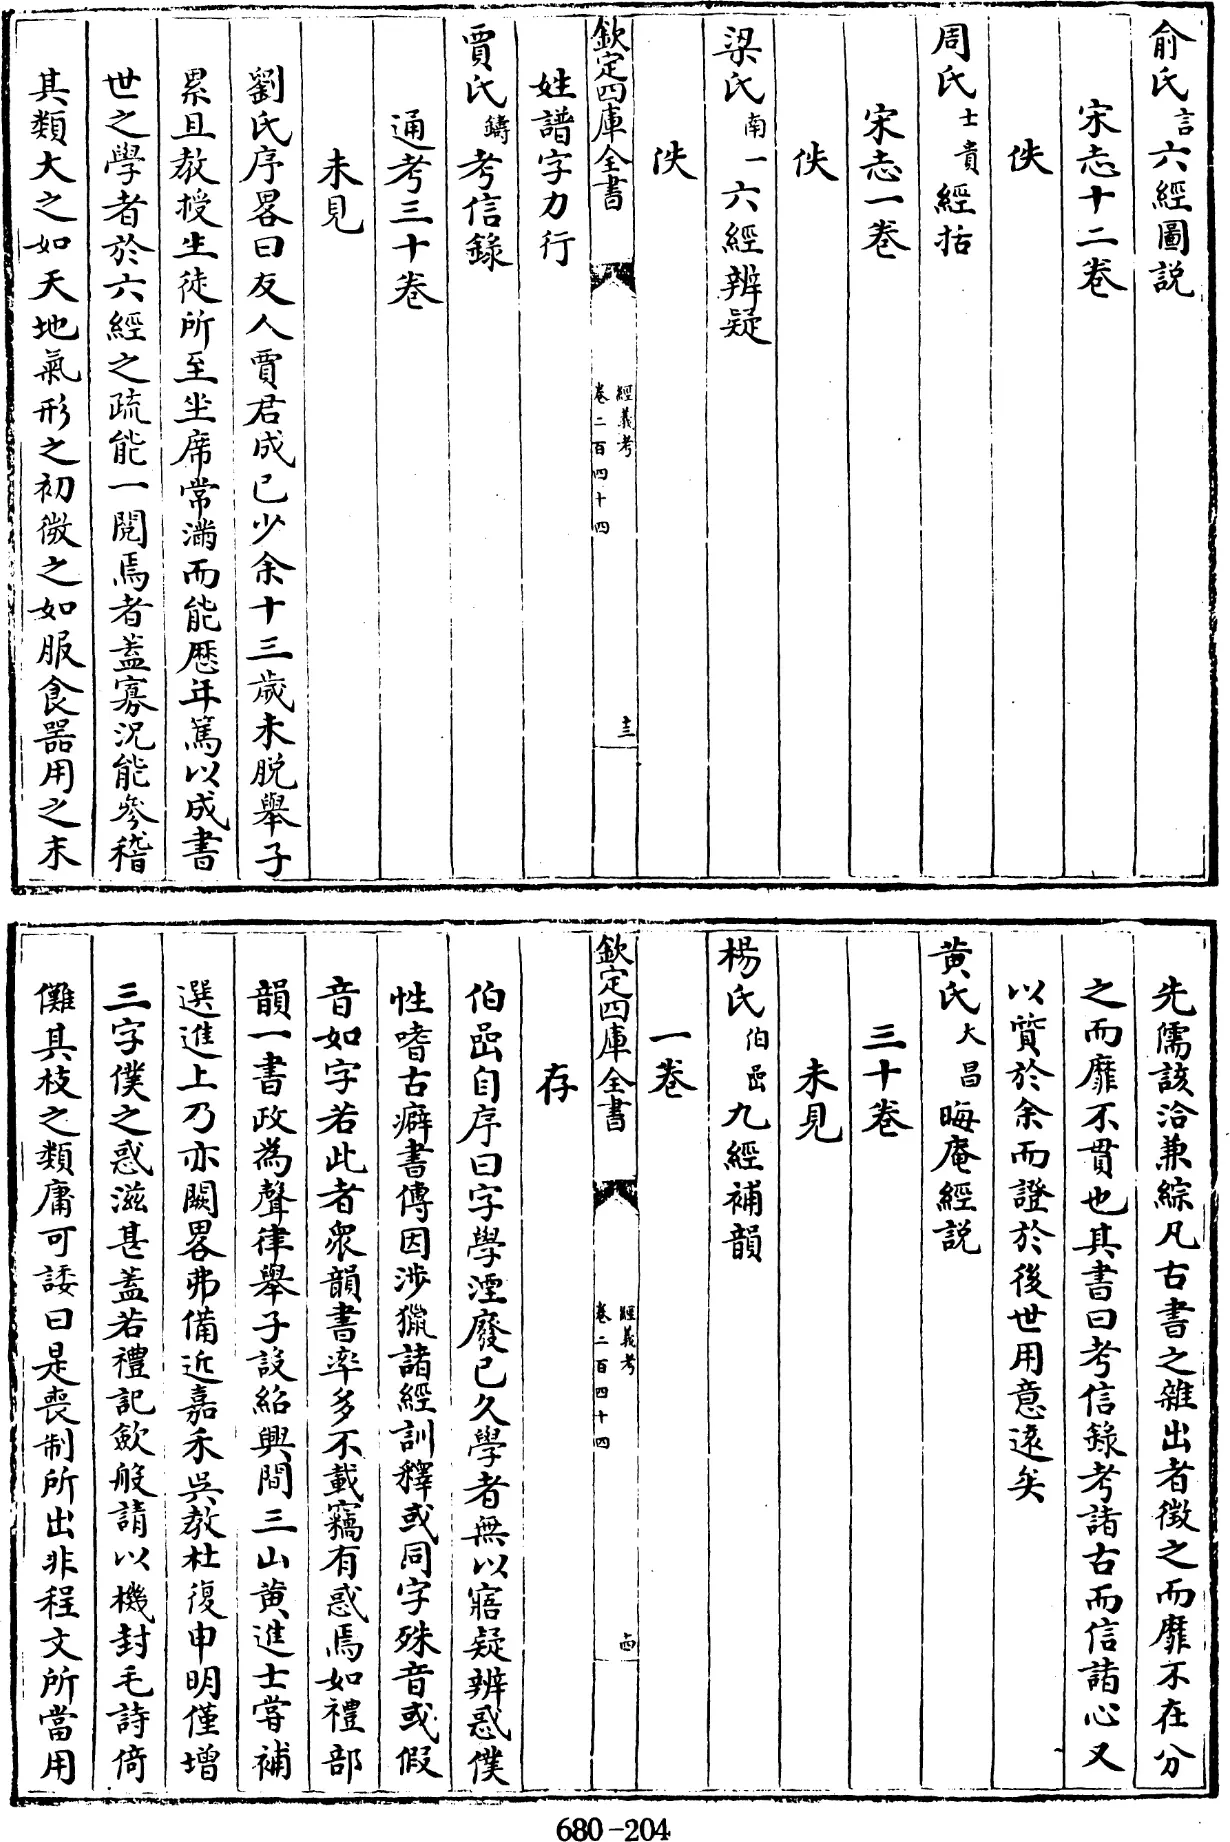 俞氏言六經圖説
宋志十二卷
佚
周氏士貴經括
宋志一卷
佚
梁氏南一六經辨疑
佚
欽定四庫全書
經義考
卷二百四十四
十三
姓譜字力行
賈氏鑄考信錄
通考三十卷
未見
劉氏序畧曰友人賈君成已少余十三歲未脱舉子
累且教授生徒所至坐席常滿而能歴年篤以成書
世之學者於六經之疏能一閲焉者蓋寡況能參稽
其類大之如天地氣形之初微之如服食器用之末
先儒該洽兼綜凡古書之雜出者徴之而靡不在分
之而靡不貫也其書曰考信錄考諸古而信諸心又
以質於余而證於後世用意逺矣
黄氏大昌晦庵經説
三十卷
未見
楊氏伯嵒九經補韻
一卷
欽定四庫全書
經義考
卷二百四十四
十四
存
伯嵒自序曰字學湮廢已久學者無以寤疑辨惑僕
性嗜古癖書傳因涉獵諸經訓釋或同字殊音或假
音如字若此者衆韻書率多不載竊有惑焉如禮部
韻一書政為聲律舉子設紹興間三山黄進士嘗補
選進上乃亦闕畧弗備近嘉禾吳教杜復申明僅增
三字僕之惑滋甚蓋若禮記歛般請以機封毛詩倚
儺其枝之類庸可諉曰是喪制所出非程文所當用
680-204